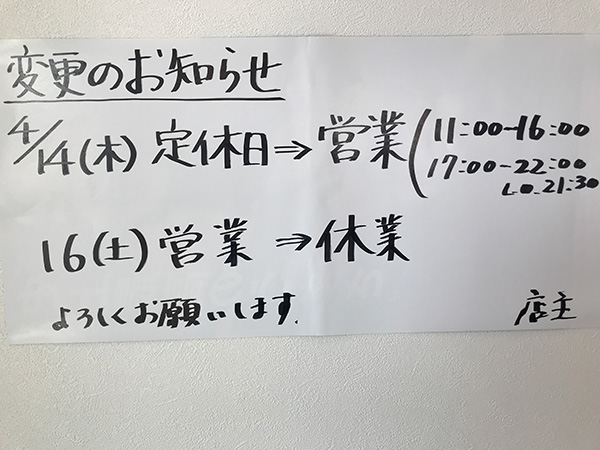 変更のお知らせ
4/14(木) 定休日⇒営業(11:00-16:00
17:00-22:00
L.O.21:30
16(土)営業⇒休業
よろしくお願いします.
店主